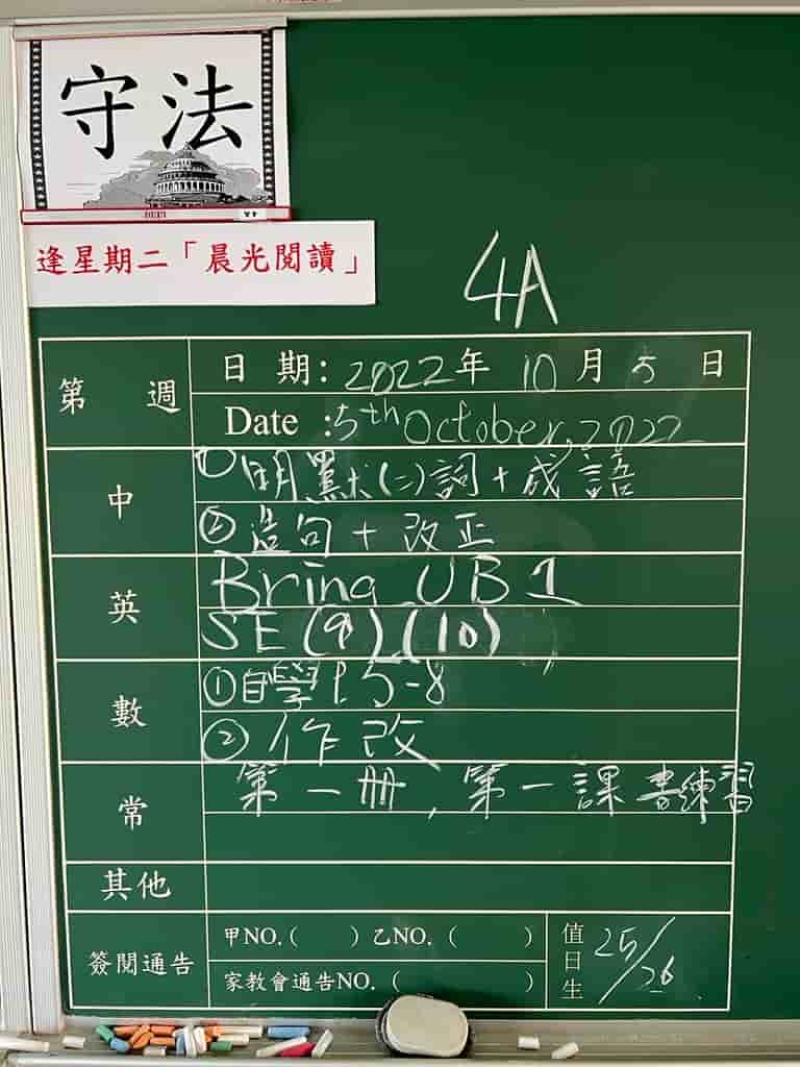 守法
逢星期二「晨光閱讀」
4A
第 週
日 期: 2022年 10 月 5 日
Date :5th October, 2022
中
①明默(二)詞+成語
②造句+改正
英
Bring UB1
SE (9),(10)
數
①自學P.5-8
②作改
常
第一冊,第一課書練習
其他
簽閱通告
甲NO.( )乙NO.( )
家教會通告NO.( )
值日生
25/26